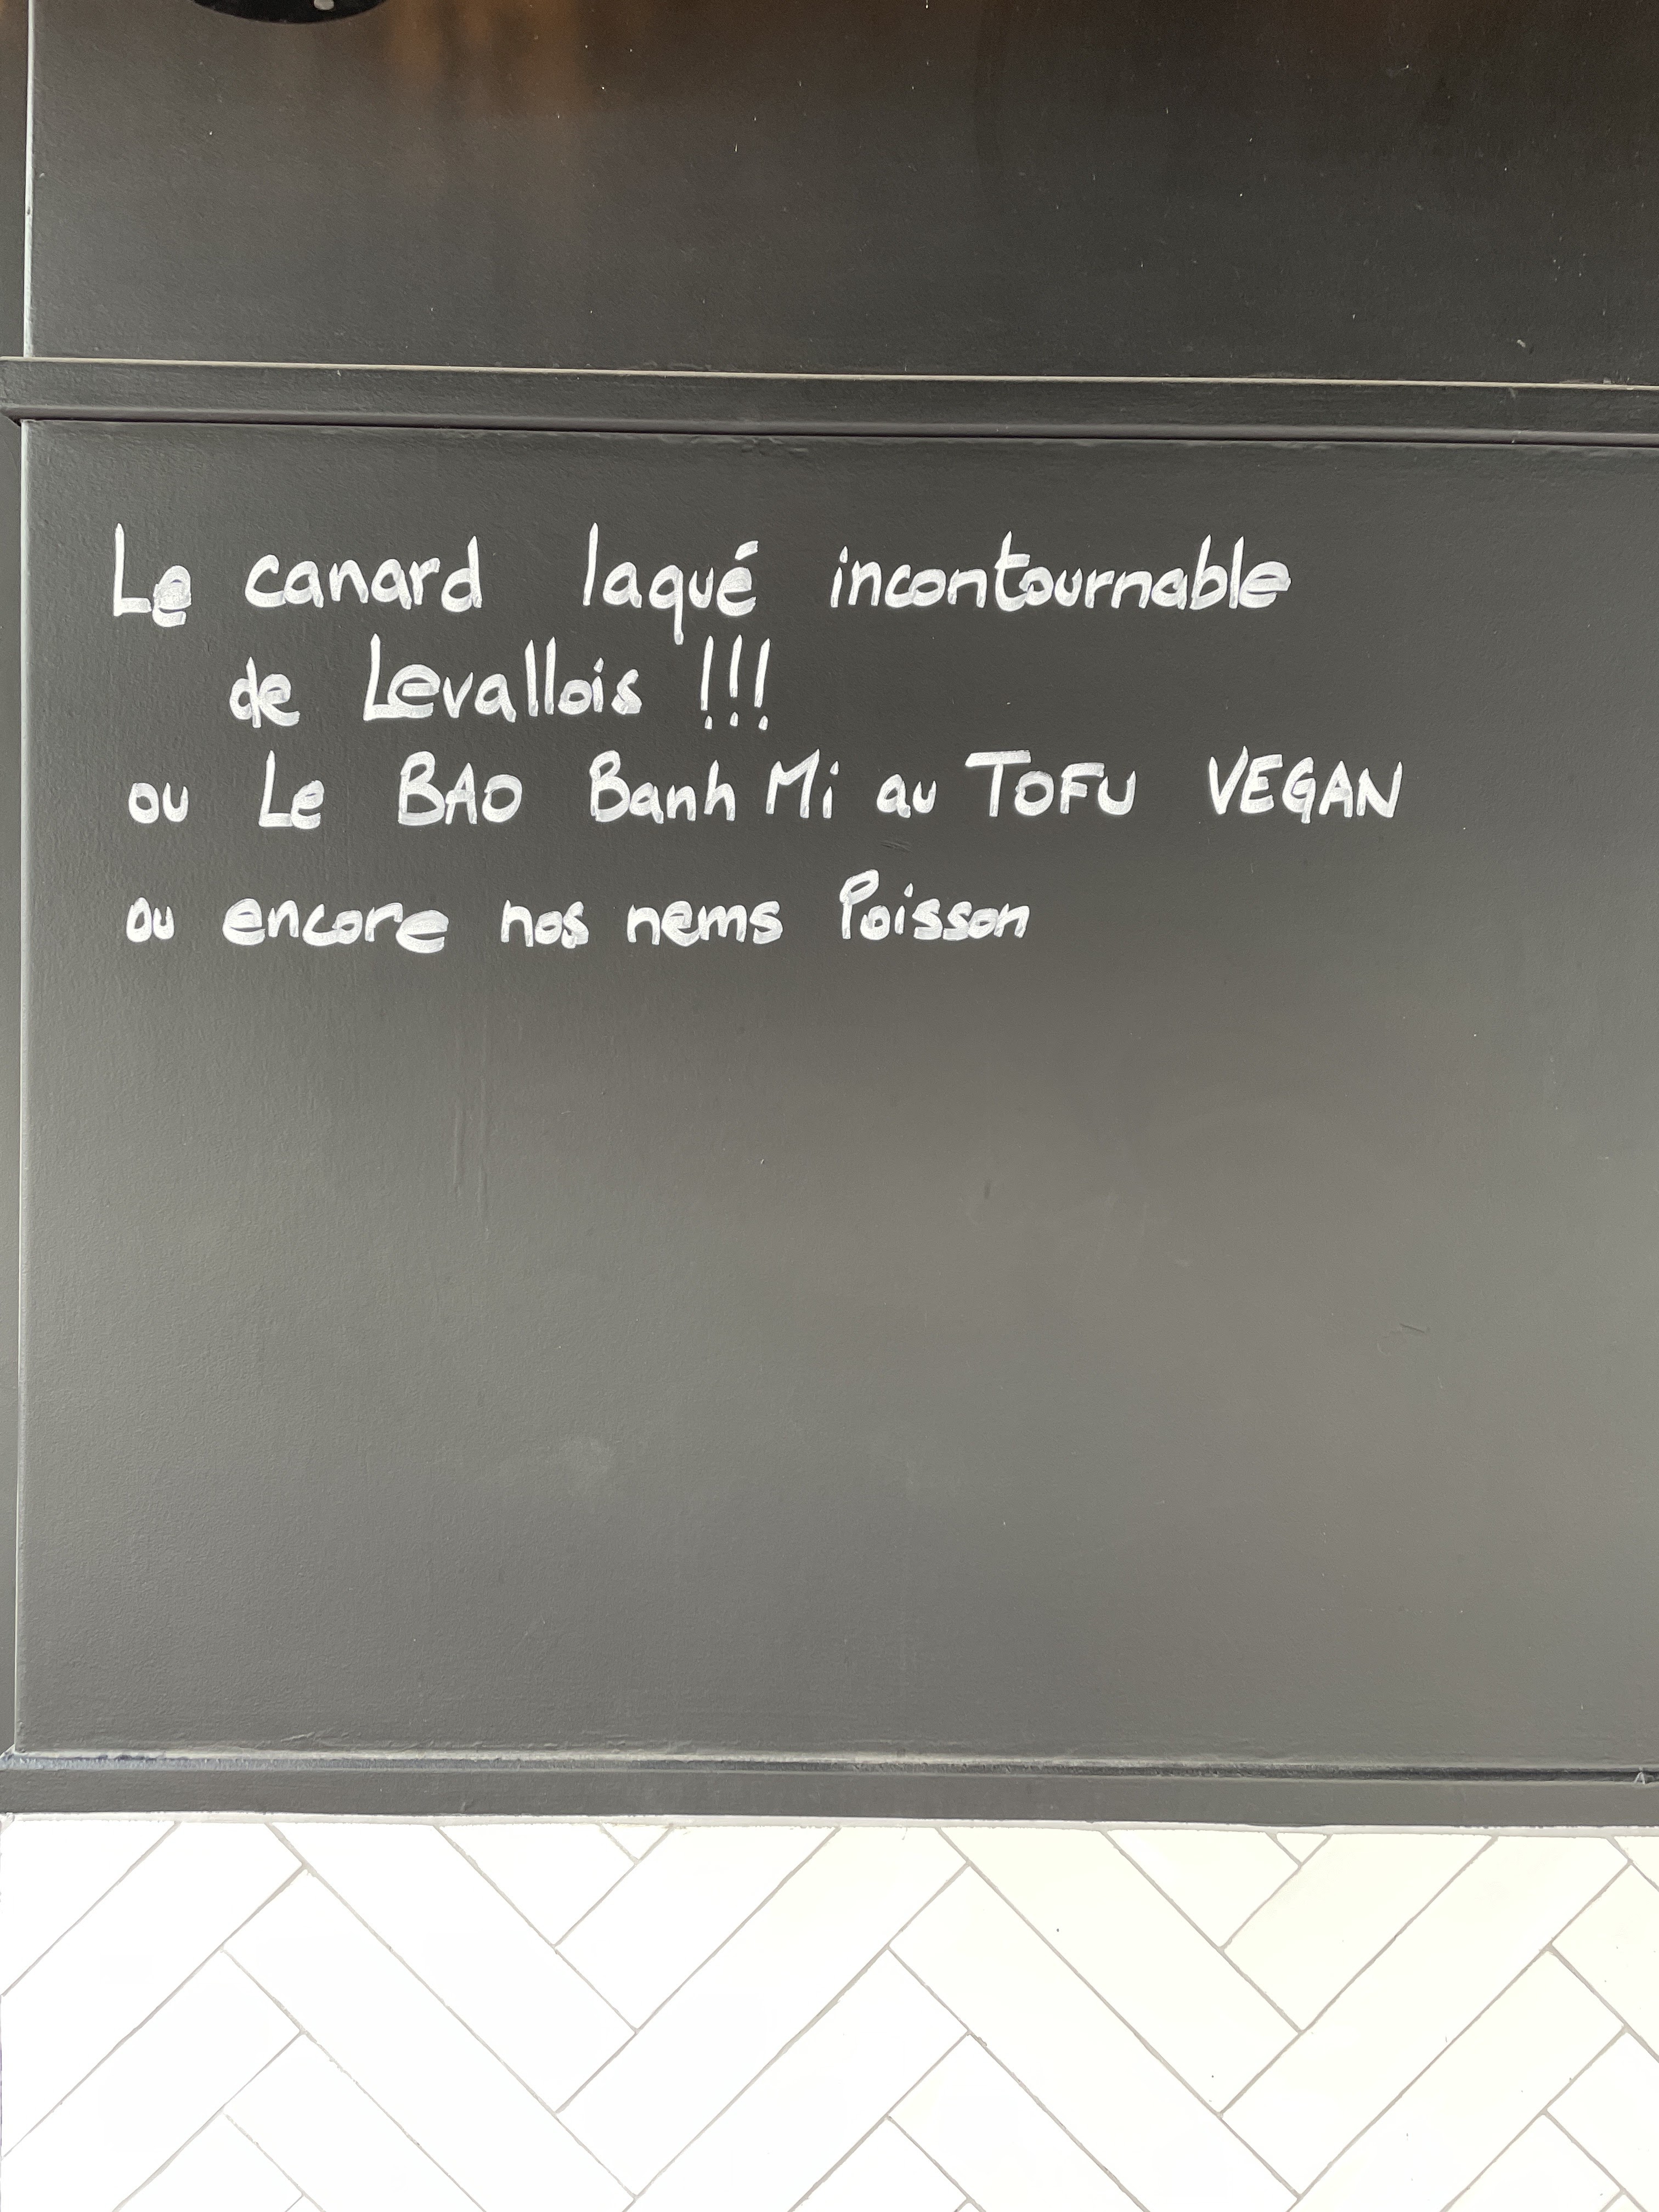 Le canard laqué incontournable
de Levallois !!!
ou Le BAO Banh Mi au TOFU VEGAN
ou encore nos nems Poisson